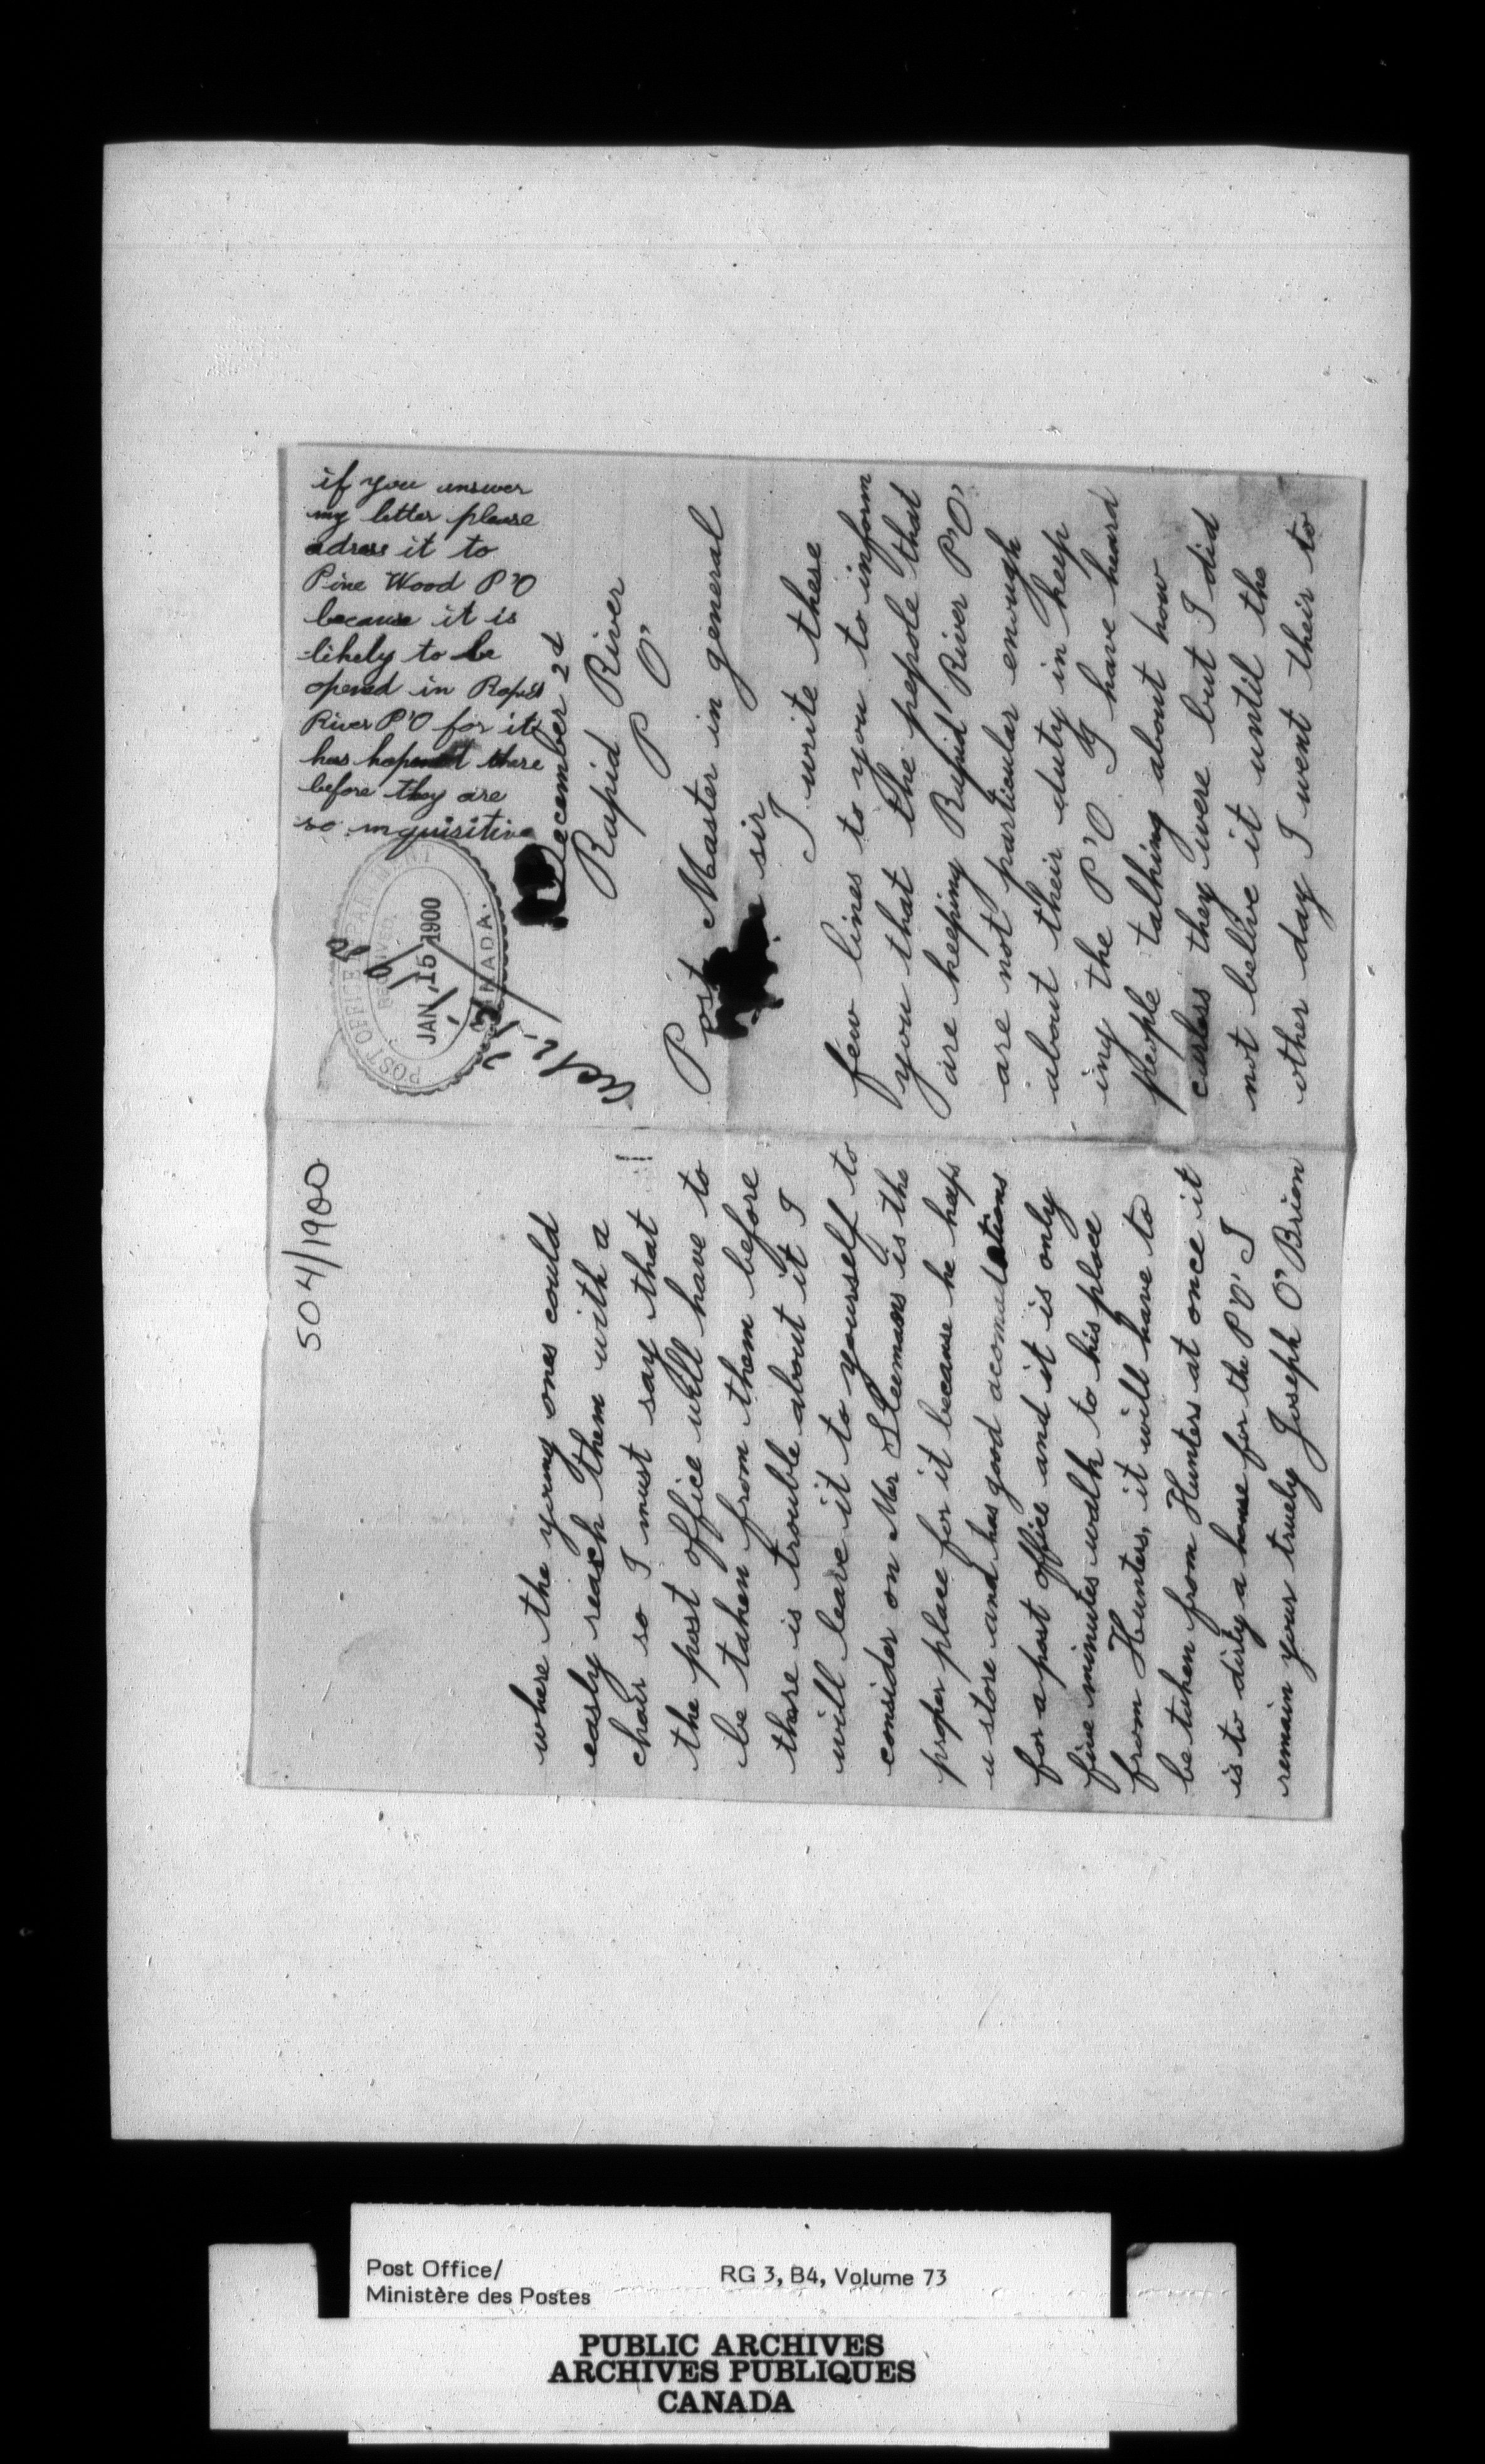 504/1900
if you answer
my letter please
adress it to
Pine Wood P'O
because it is
likely to be
opened in Rapid
River P'O for it
has hapened there
before they are
so inquisitive
POST OFFICE DEPARTMENT
RECEIVED
JAN 15 1900
CANADA.
December 2d
Rapid River
P O'
Post Master in general
sir
I write these
few lines to you to inform
you that the pepole that
are keeping Rapid River P'O,
are not particular enough
about their duty in keep
ing the P'O I have heard
people talking about how
carless they were but I did
not belive it until the
other day I went their to
where the young ones could
easly reach them with a
chair so I must say that
the post office will have to
be taken from them before
there is trouble about it I
will leave it to yourself to
consider on Mer Sleemans is the
proper place for it because he keeps
a store and has good acomulations
for a post office and it is only
five minutes walk to his place
from Hunters, it will have to
be taken from Hunters at once it
is to dirty a house for the P'O' I
remain your truely Joseph O'Brien
Post Office/
Ministère des Postes
RG 3, B4, Volume 73
PUBLIC ARCHIVES
ARCHIVES PUBLIQUES
CANADA